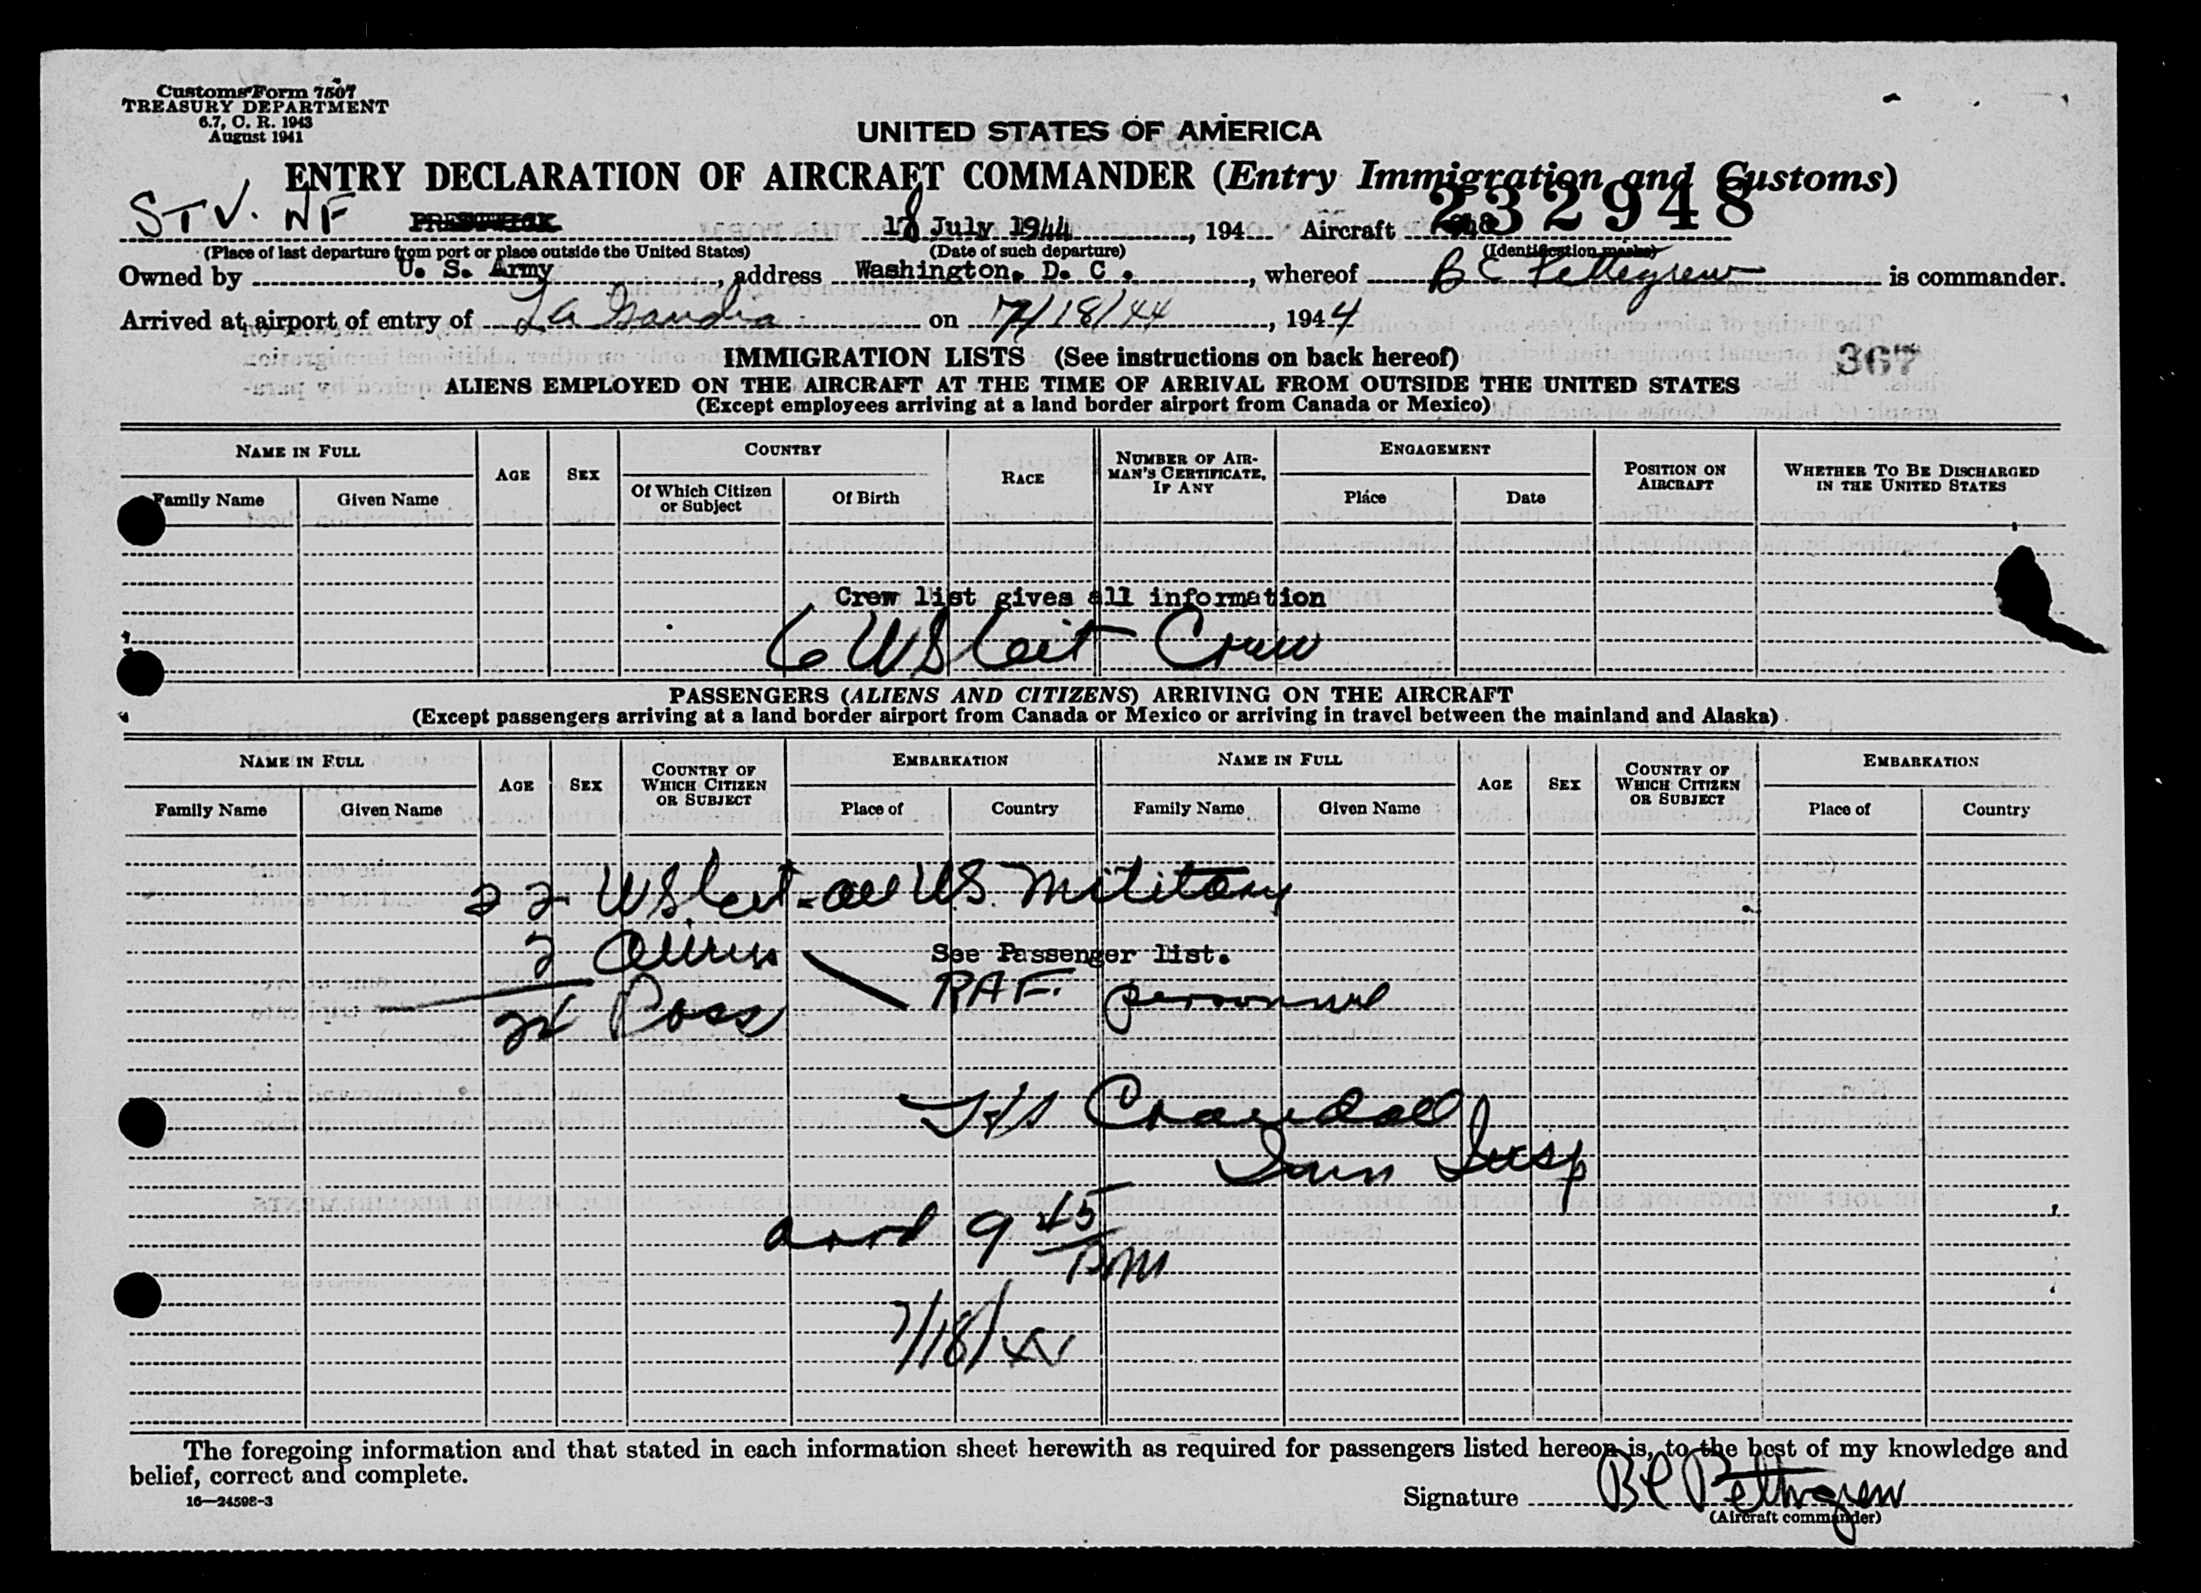 Customs Form 7507
TREASURY DEPARTMENT
6.7, C. R. 1943
August 1941
UNITED STATES OF AMERICA
ENTRY DECLARATION OF AIRCRAFT COMMANDER (Entry Immigration and Customs)
232948
STV. NF PRESTWICK 18 July 1944, 194 Aircraft
(Place of last departure from port or place outside the United States) (Date of such departure) (Identification marks)
Owned by U. S. Army, address Washington, D. C., whereof B C Pettegrew is commander.
Arrived at airport of entry of La Guardia on 7/18/44, 1944
IMMIGRATION LISTS (See instructions on back hereof)
367
ALIENS EMPLOYED ON THE AIRCRAFT AT THE TIME OF ARRIVAL FROM OUTSIDE THE UNITED STATES
(Except employees arriving at a land border airport from Canada or Mexico)
NAME IN FULL AGE SEX COUNTRY RACE NUMBER OF AIRMAN'S CERTIFICATE, IF ANY ENGAGEMENT POSITION ON AIRCRAFT WHETHER TO BE DISCHARGED IN THE UNITED STATES
Family Name Given Name Of Which Citizen or Subject Of Birth Place Date
Crew list gives all information
6 US Cit Crew
PASSENGERS (ALIENS AND CITIZENS) ARRIVING ON THE AIRCRAFT
(Except passengers arriving at a land border airport from Canada or Mexico or arriving in travel between the mainland and Alaska)
NAME IN FULL AGE SEX COUNTRY OF WHICH CITIZEN OR SUBJECT EMBARKATION NAME IN FULL AGE SEX COUNTRY OF WHICH CITIZEN OR SUBJECT EMBARKATION
Family Name Given Name Place of Country Family Name Given Name Place of Country
22 US Cit - all US. Military
2 Aliens
See Passenger list.
RAF. personnel
24 Pass
Crandall
Imm Insp
arrd 9 45 PM
7/18/44
The foregoing information and that stated in each information sheet herewith as required for passengers listed hereon is, to the best of my knowledge and
belief, correct and complete.
16—24598-3
Signature B C Pettegrew
(Aircraft commander)